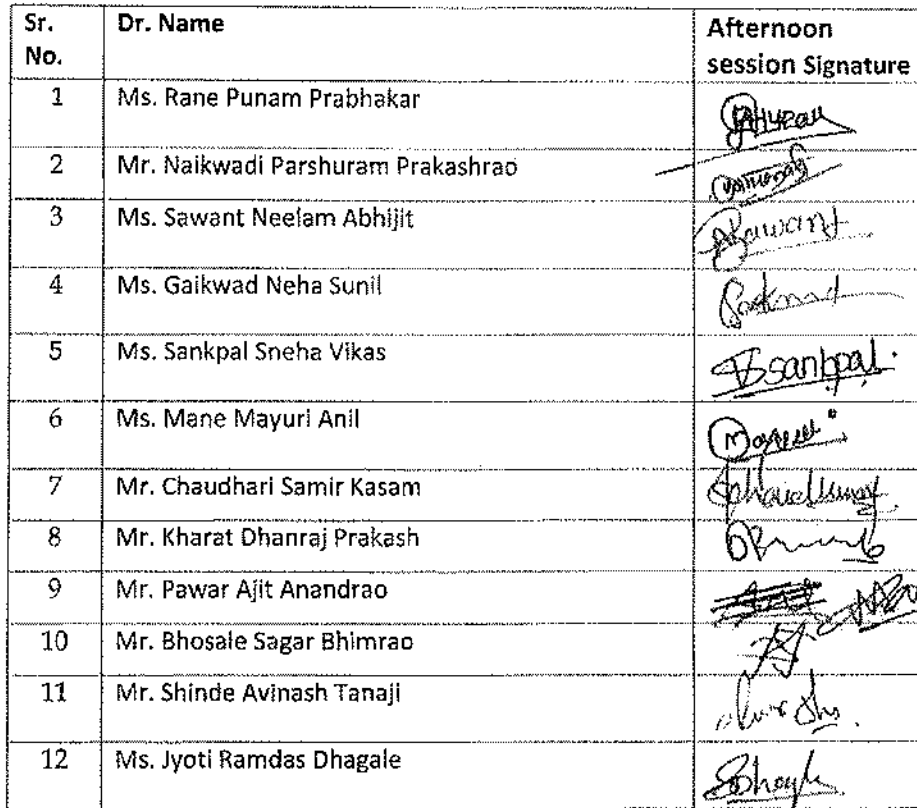 Sr. No. Dr. Name Afternoon session Signature
1 Ms. Rane Punam Prabhakar
2 Mr. Naikwadi Parshuram Prakashrao
3 Ms. Sawant Neelam Abhijit Sawant
4 Ms. Gaikwad Neha Sunil
5 Ms. Sankpal Sneha Vikas Sankpal
6 Ms. Mane Mayuri Anil
7 Mr. Chaudhari Samir Kasam
8 Mr. Kharat Dhanraj Prakash
9 Mr. Pawar Ajit Anandrao
10 Mr. Bhosale Sagar Bhimrao
11 Mr. Shinde Avinash Tanaji
12 Ms. Jyoti Ramdas Dhagale